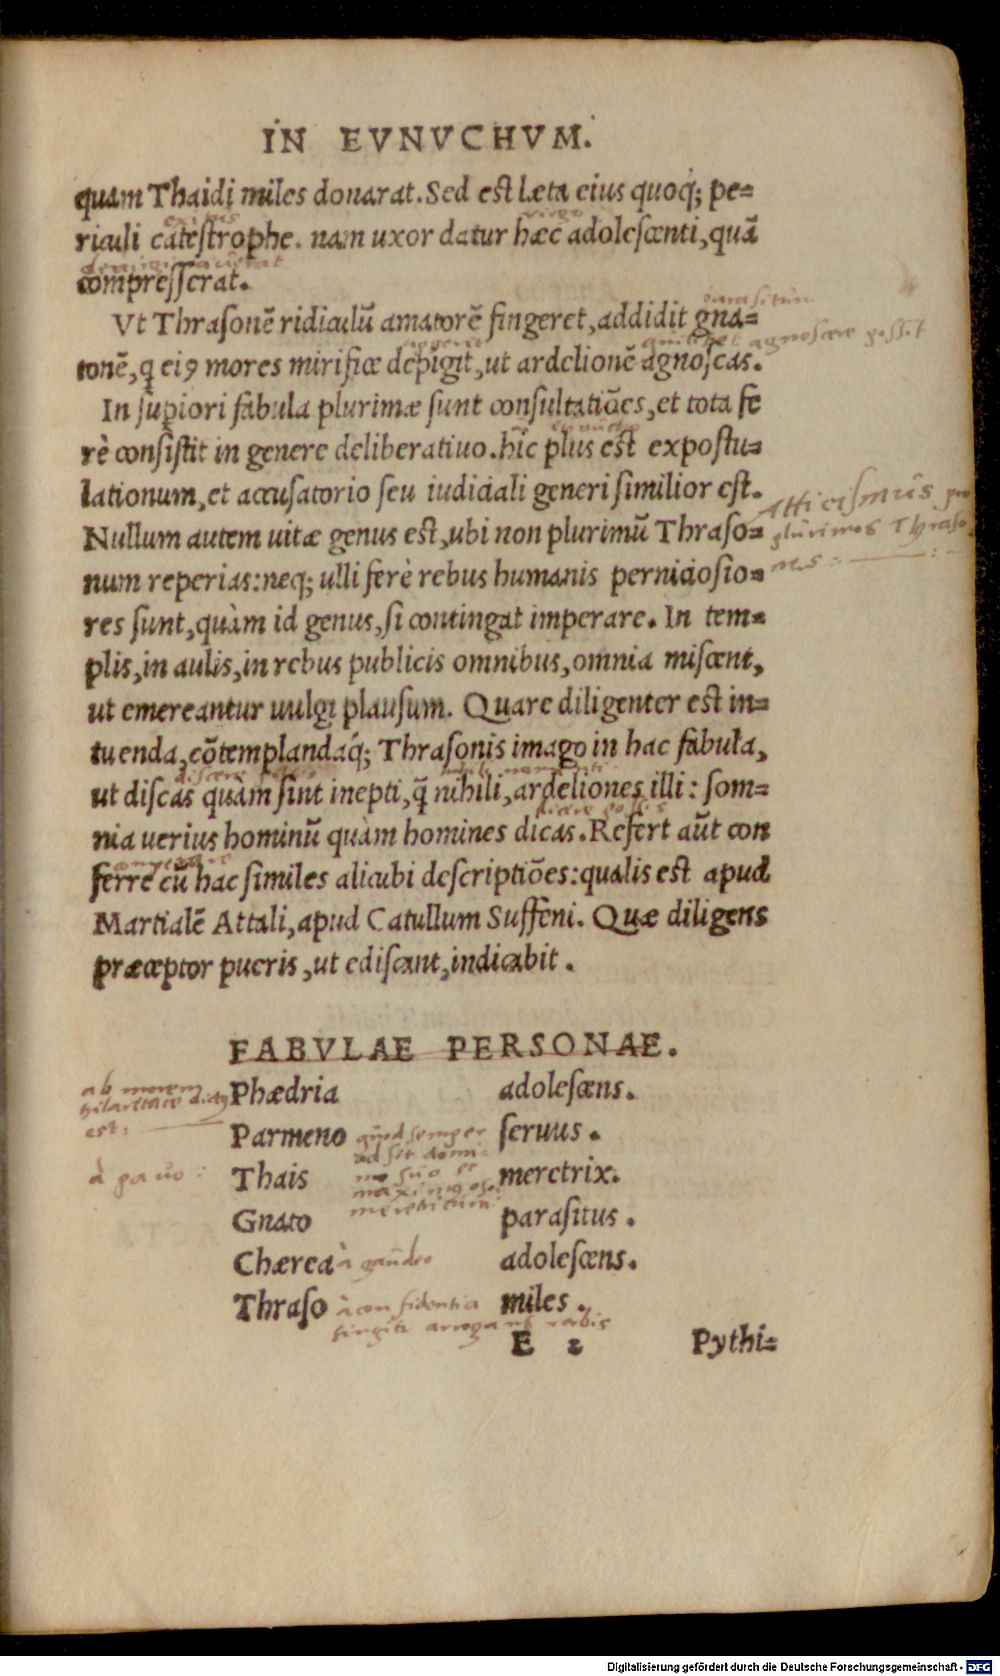 IN EVNVCHVM.
quam Thaidi miles donarat. Sed est læta eius quoq́; pe=
exitus virgo
riculi catestrophe. nam uxor datur hæc adolescenti, quã
compresserat.
parasitum
Vt Thrasonẽ ridiculũ amatorẽ fingeret, addidit gna=
agnoscere possit
tonẽ, q̃ eiꝰ mores mirifice depigit, ut ardelionẽ agnoscas.
In supiori fabula plurimæ sunt consultatiões, et tota fe
rè consistit in genere deliberatiuo. hic plus est expostu=
lationum, et accusatorio seu iudiciali generi similior est.
Atticismus pro
Nullum autem uitæ genus est, ubi non plurimũ Thraso=
plurimos Thraso
num reperias: neq; ulli ferè rebus humanis perniciosio=
nes :
res sunt, quàm id genus, si contingat imperare. In tem=
plis, in aulis, in rebus publicis omnibus, omnia miscent,
ut emereantur uulgi plausum. Quare diligenter est in=
tuenda, cõtemplandaq́; Thrasonis imago in hac fabula,
discere nihili momenti
ut discas quàm sint inepti, q̃ nihili, ardeliones illi: som=
dicere possis
nia uerius hominũ quàm homines dicas. Refert aũt con
ferre cũ hac similes alicubi descriptiões: qualis est apud
Martialẽ Attali, apud Catullum Suffeni. Quæ diligens
præceptor pueris, ut ediscant, indicabit.
FABVLAE PERSONAE.
ab morem
hilaritate dictꝰ
est :
Phædria adolescens.
Parmeno seruus.
quod semper
ad sit domi-
no suo et
à pauo :
Thais meretrix.
Gnato parasitus.
Chærea à gaudeo adolescens.
Thraso à confidentia miles.
E 2 Pythi=
Digitalisierung gefördert durch die Deutsche Forschungsgemeinschaft - DFG